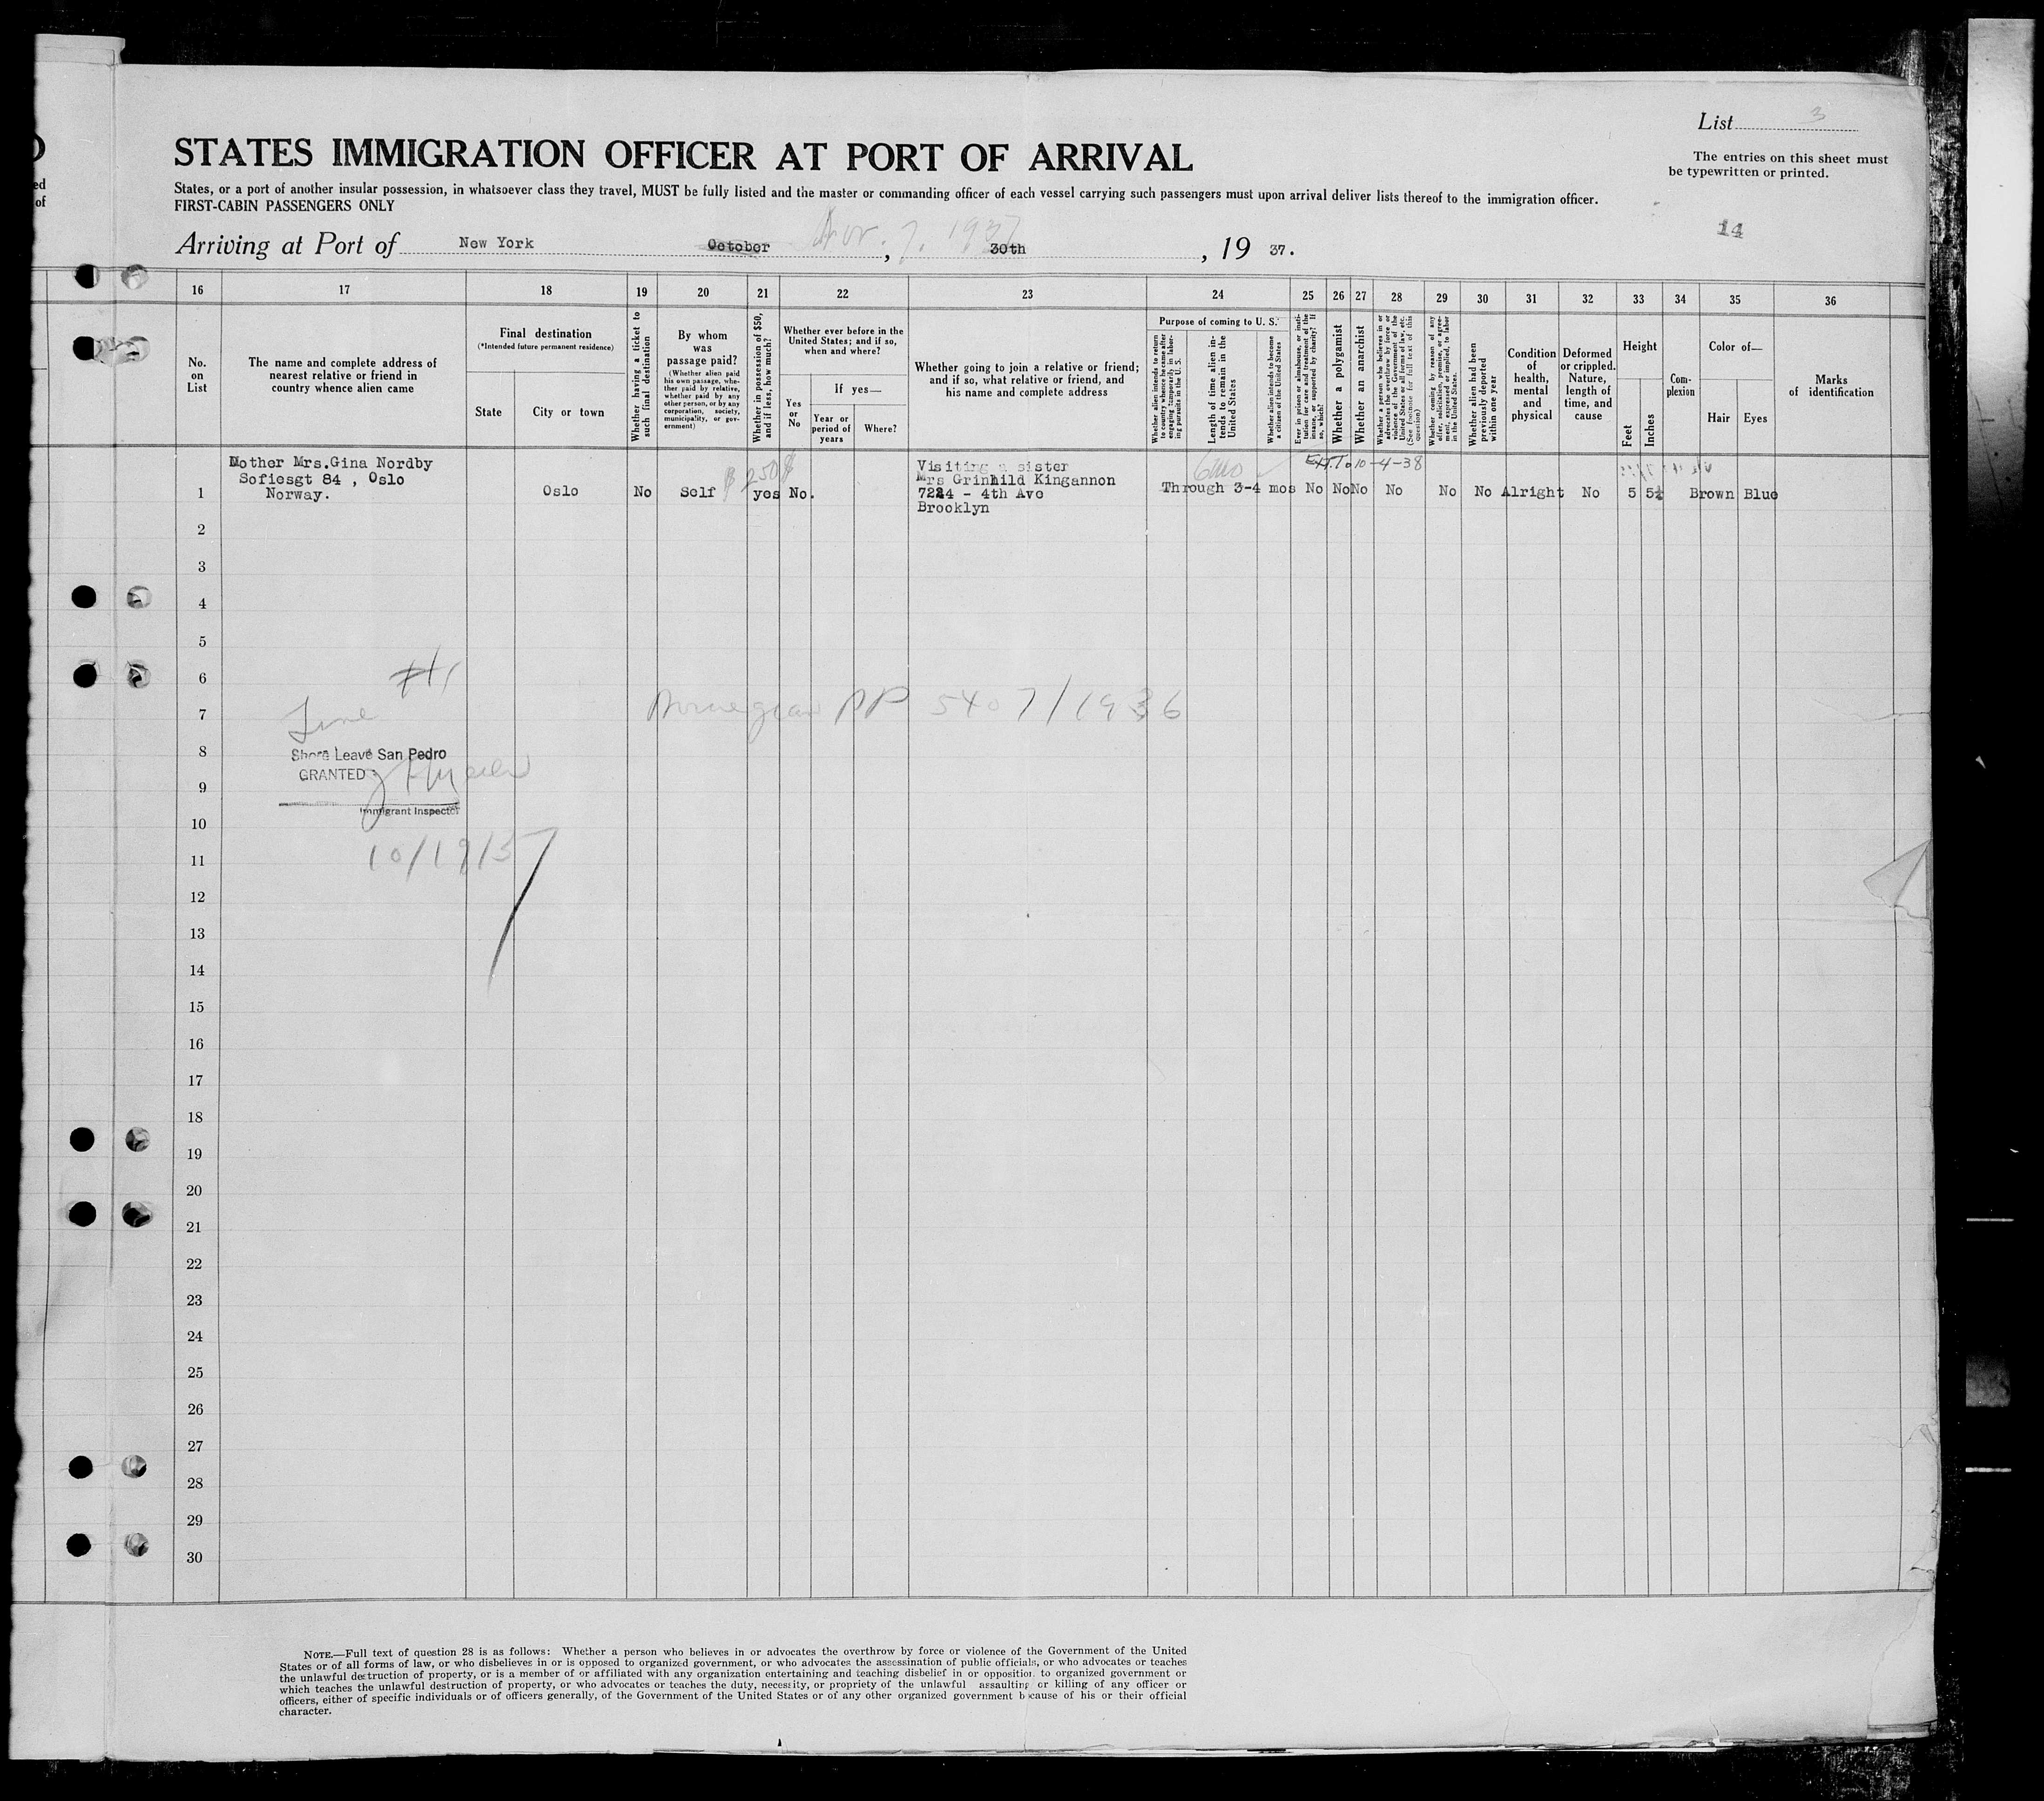 D
ed
of
List 3
STATES IMMIGRATION OFFICER AT PORT OF ARRIVAL
The entries on this sheet must
be typewritten or printed.
States, or a port of another insular possession, in whatsoever class they travel, MUST be fully listed and the master or commanding officer of each vessel carrying such passengers must upon arrival deliver lists thereof to the immigration officer.
FIRST-CABIN PASSENGERS ONLY
14
Nov. 7. 1937
Arriving at Port of New York October , 30th , 19 37.
16 17 18 19 20 21 22 23 24 25 26 27 28 29 30 31 32 33 34 35 36
No.
on
List
The name and complete address of
nearest relative or friend in
country whence alien came
Final destination
(*Intended future permanent residence)
State
City or town
Whether having a ticket to
such final destination
By whom
was
passage paid?
(Whether alien paid
his own passage, whe-
ther paid by relative,
whether paid by any
other person, or by any
corporation, society,
municipality, or gov-
ernment)
Whether in possession of $50,
and if less, how much?
Whether ever before in the
United States; and if so,
when and where?
Yes
or
No
If yes—
Year or
period of
years
Where?
Whether going to join a relative or friend;
and if so, what relative or friend, and
his name and complete address
Purpose of coming to U. S.
Whether alien intends to return
to country whence he came after
engaging temporarily in labor-
ing pursuits in the U. S.
Length of time alien in-
tends to remain in the
United States
Whether alien intends to become
a citizen of the United States
Ever in prison or almshouse, or insti-
tution for care and treatment of the
insane, or supported by charity? If
so, which?
Whether a polygamist
Whether an anarchist
Whether a person who believes in or
advocates the overthrow by force or
violence of the Government of the
United States or all forms of law, etc.
(See footnote for full text of this
question)
Whether coming by reason of any
offer, solicitation, promise, or agree-
ment, expressed or implied, to labor
in the United States
Whether alien had been
previously deported
within one year
Condition
of
health,
mental
and
physical
Deformed
or crippled.
Nature,
length of
time, and
cause
Height
Feet
Inches
Com-
plexion
Color of—
Hair
Eyes
Marks
of identification
$ 250$
6mo
EXT. To 10-4-38
Mother Mrs.Gina Nordby
Sofiesgt 84 , Oslo
Norway.
1 Oslo No Self yes No.
Visiting a sister
Mrs Grinhild Kingannon
7224 - 4th Ave
Brooklyn
Through 3-4 mos No No No No No No Alright No 5 5½ Brown Blue
2
3
4
5
6
7
8
9
10
11
12
13
14
15
16
17
18
19
20
21
22
23
24
25
26
27
28
29
30
#1
Line
Norwegian PP 5407/1936
Shore Leave San Pedro
GRANTED
Immigrant Inspector
10/19/37
NOTE.—Full text of question 28 is as follows: Whether a person who believes in or advocates the overthrow by force or violence of the Government of the United
States or of all forms of law, or who disbelieves in or is opposed to organized government, or who advocates the assassination of public officials, or who advocates or teaches
the unlawful destruction of property, or is a member of or affiliated with any organization entertaining and teaching disbelief in or opposition to organized government or
which teaches the unlawful destruction of property, or who advocates or teaches the duty, necessity, or propriety of the unlawful assaulting or killing of any officer or
officers, either of specific individuals or of officers generally, of the Government of the United States or of any other organized government because of his or their official
character.